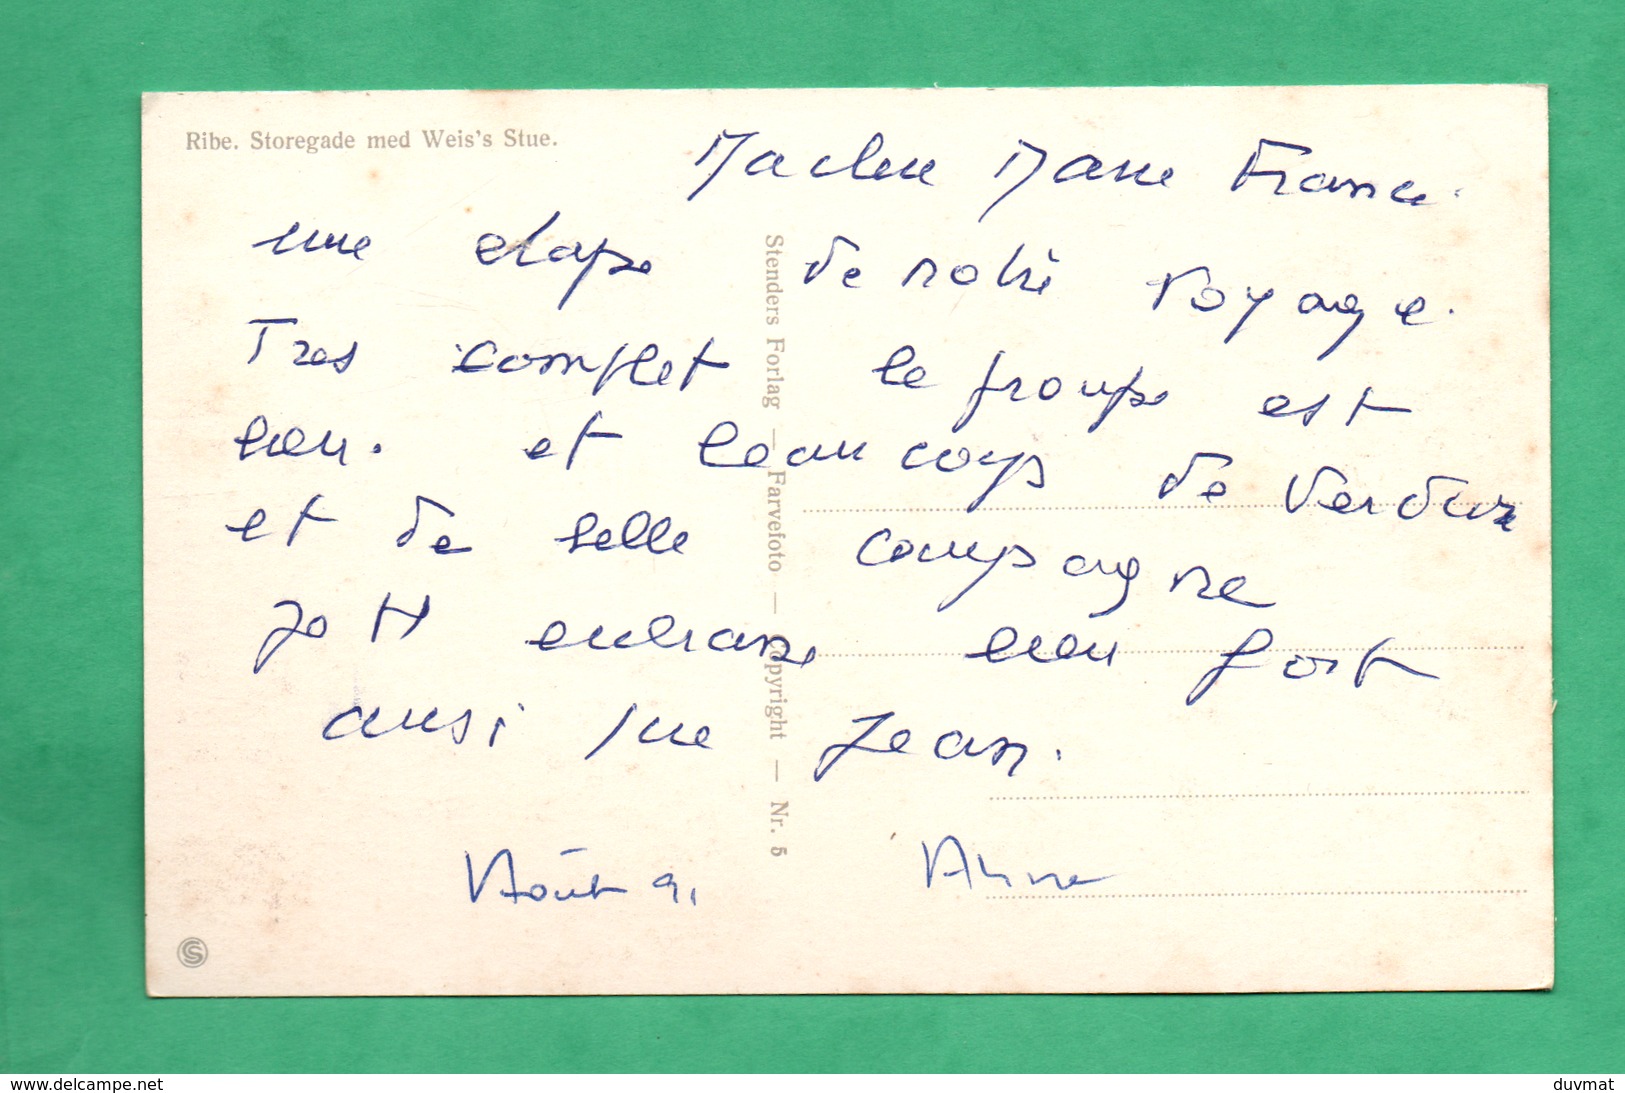 Ribe. Storegade med Weis's Stue.
Ma chere Marie France.
une etape de notre voyage.
Tres complet le groupe est
bien. et beaucoup de verdure
et de belle campagne
Je t'embrasse bien fort
ainsi que Jean.
Août 91
Stenders Forlag — Farvefoto — Copyright — Nr. 5
www.delcampe.net
duvmat